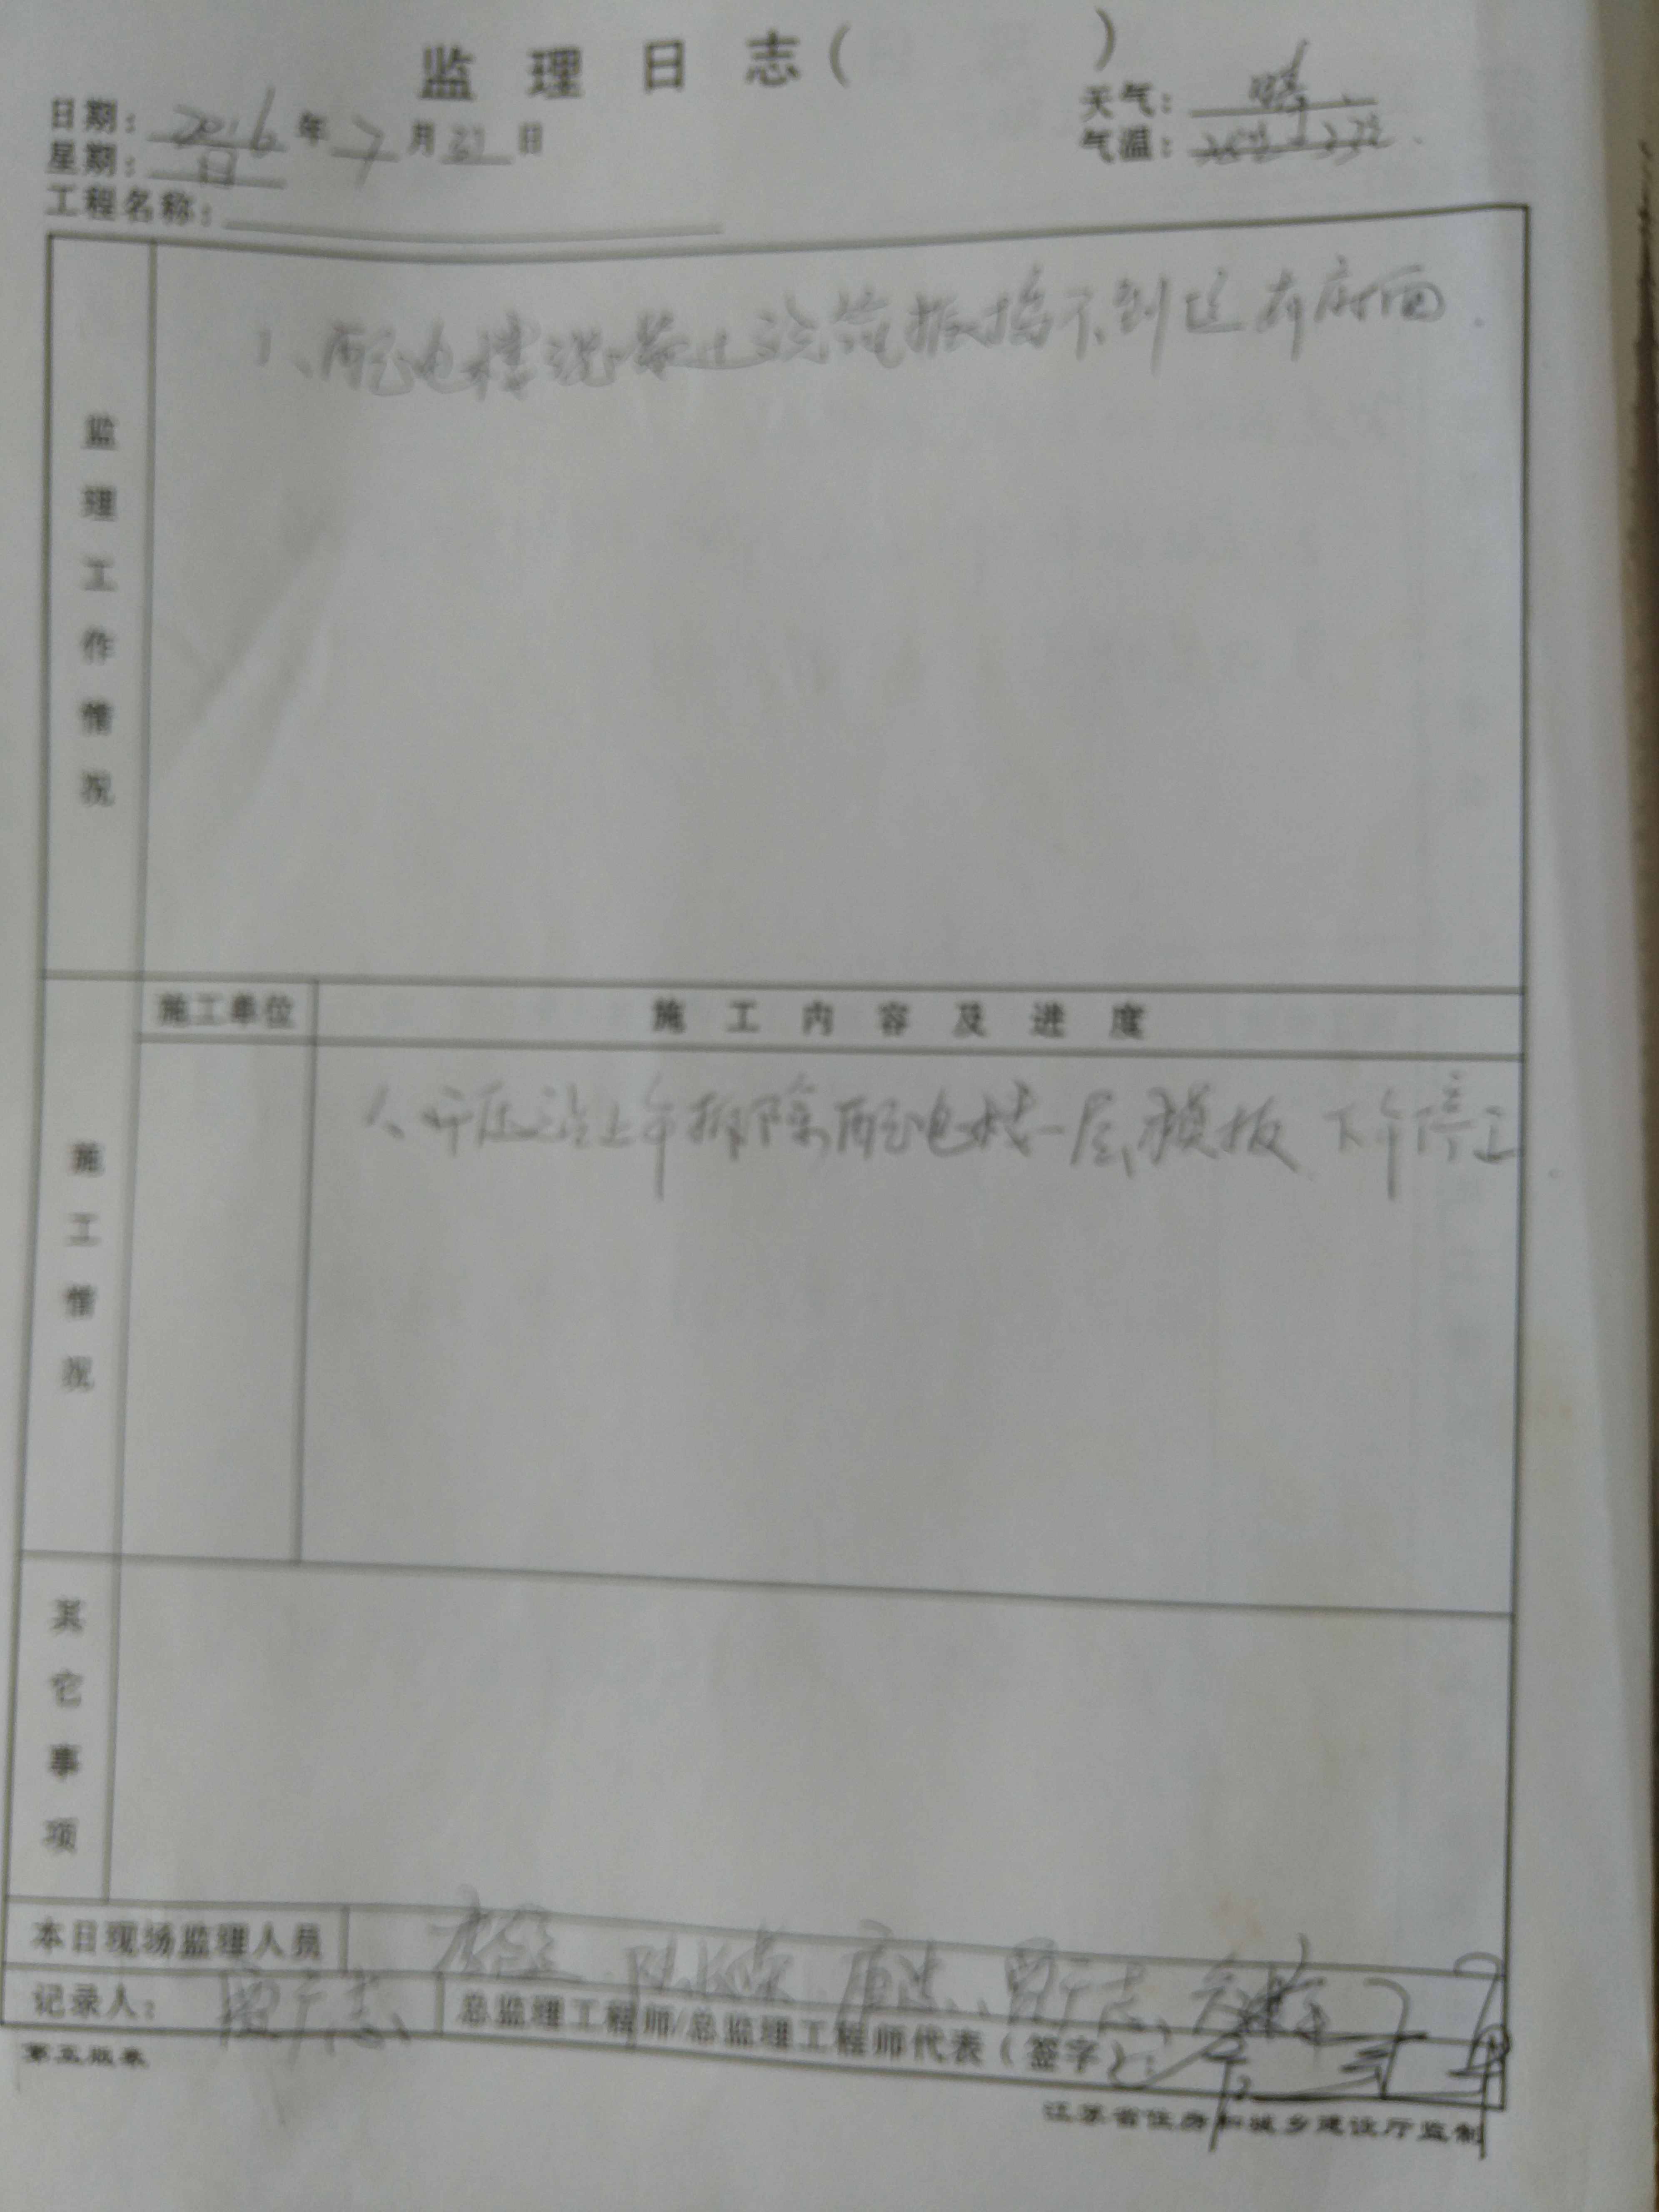 监理日志（ ）
日期：2016年7月31日
天气：晴
星期：日
气温：
工程名称：
监理工作情况
1、配电楼混凝土浇筑振捣不到位有麻面.
施工单位
施工内容及进度
施工情况
上午拆除配电楼一层模板 下午停工.
其它事项
本日现场监理人员
记录人：
总监理工程师/总监理工程师代表（签字）：
第五版表
江苏省住房和城乡建设厅监制